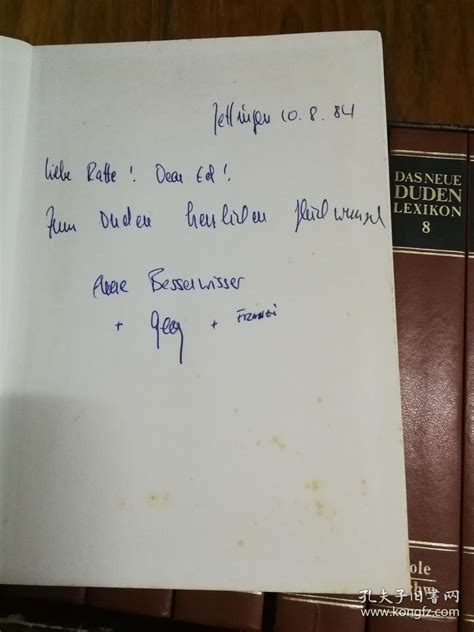 Jettingen 10.8.84
Liebe Ratte! Dear Ed!
Zum Duden herzlichen Glückwunsch
Besserwisser
+ Georg + FRANZI
DAS NEUE
DUDEN
LEXIKON
8
孔夫子旧书网
www.kongfz.com